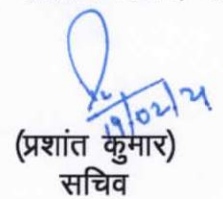 19/02/21
(प्रशांत कुमार)
सचिव